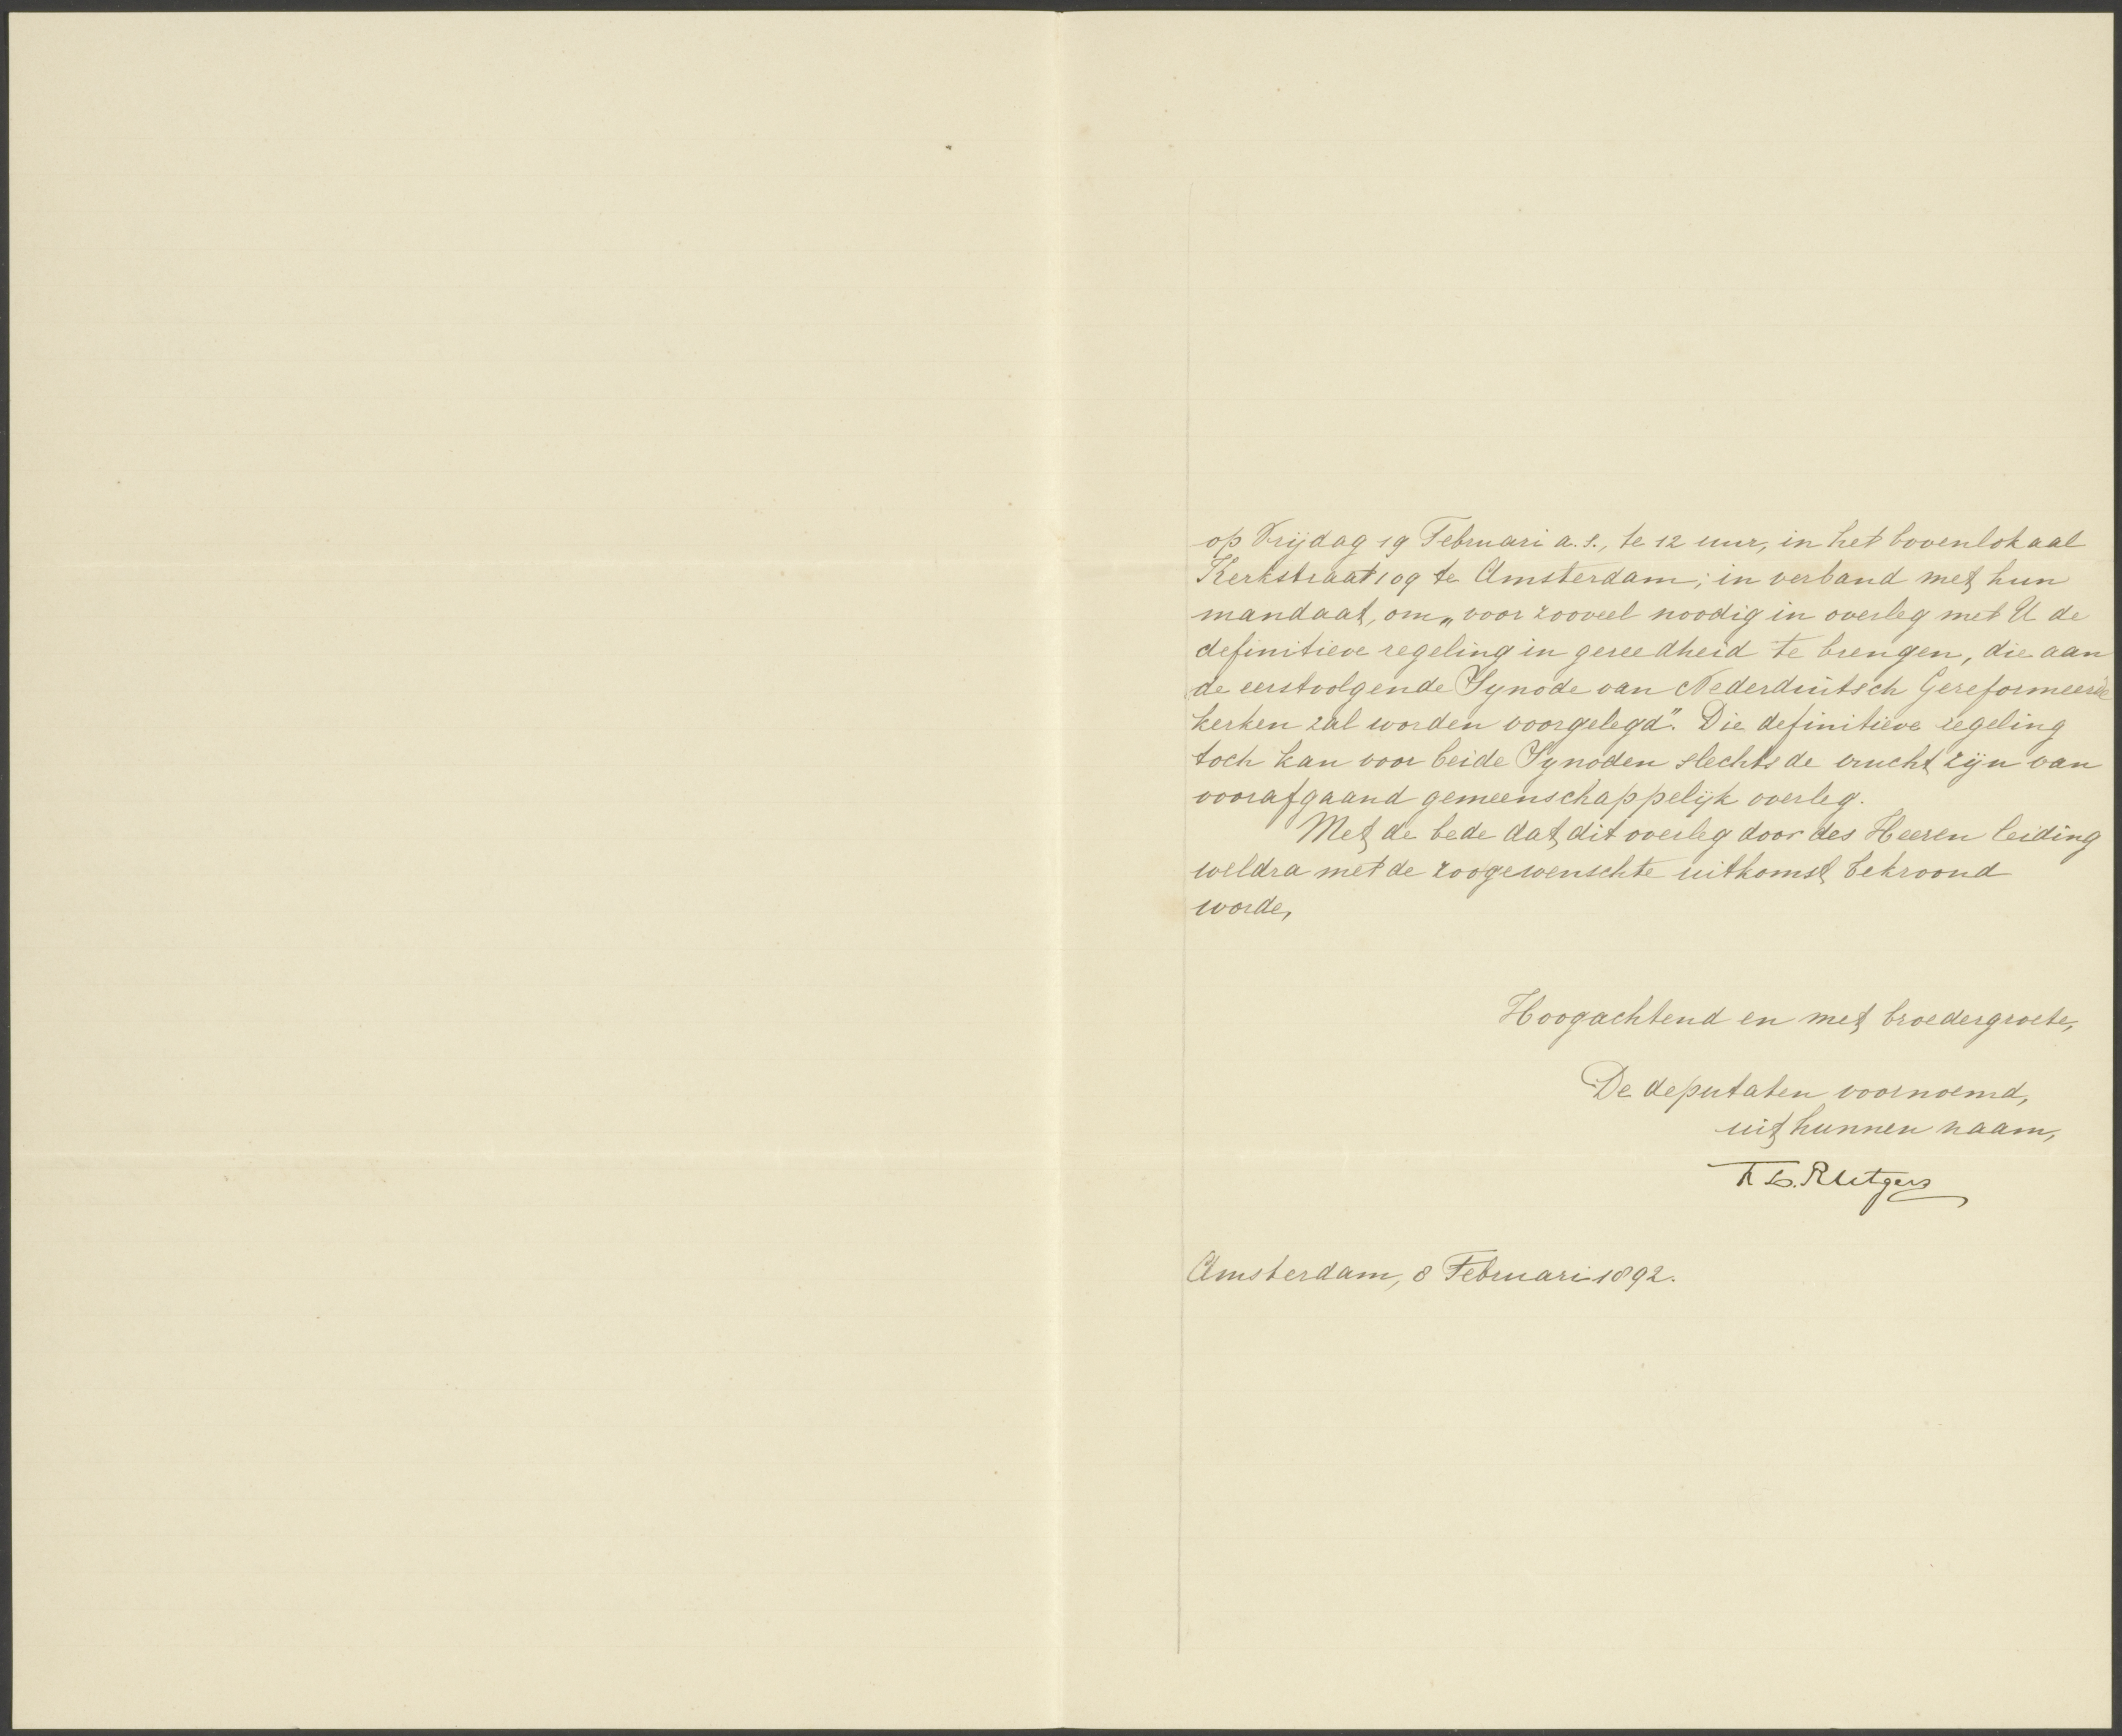 op Vrijdag 19 Februari a.s., te 12 uur, in het bovenlokaal
Kerkstraat 109 te Amsterdam; in verband met hun
mandaat, om „voor zooveel noodig in overleg met U de
definitieve regeling in gereedheid te brengen, die aan
de eerstvolgende Synode van Nederduitsch Gereformeerde
kerken zal worden voorgelegd”. Die definitieve regeling
toch kan voor beide Synoden slechts de vrucht zijn van
voorafgaand gemeenschappelijk overleg.
Met de bede dat dit overleg door des Heeren leiding
weldra met de zoogewenschte uitkomst bekroond
worde,
Hoogachtend en met broedergroete,
De deputaten voornoemd,
uit hunnen naam,
F. L. Rutgers
Amsterdam, 8 Februari 1892.